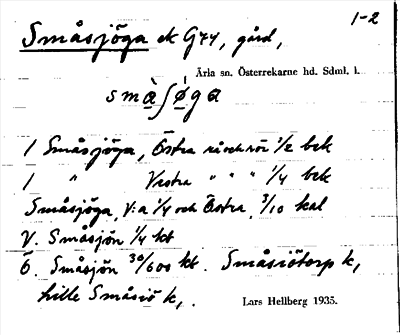 1-2
Småsjöga ek G44, gård,
Ärla sn. Österrekarne hd. Sdml. l.
1 Småsjöga, Östra rå och rör 1/2 bek
1 " Vestra " " " 1/4 bek
Småsjöga, V:a 1/4 och Östra, 3/10 kal
V. Småsjön 1/4 kt
Ö. Småsjön 30/600 kt. Småsiötorp k,
lille Småsiö k,.
Lars Hellberg 1935.